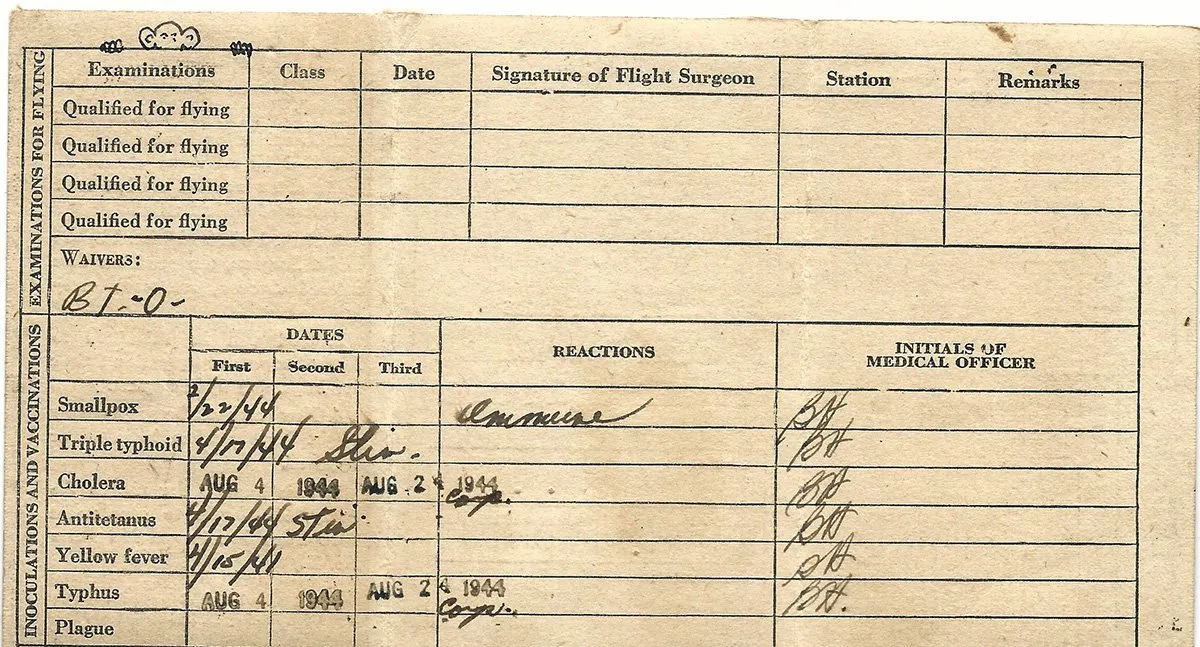 Examinations Class Date Signature of Flight Surgeon Station Remarks
Qualified for flying
Qualified for flying
Qualified for flying
Qualified for flying
EXAMINATIONS FOR FLYING
WAIVERS:
BT.-O-
INOCULATIONS AND VACCINATIONS
DATES REACTIONS INITIALS OF
MEDICAL OFFICER
First Second Third
Smallpox 2/22/44 Immune BH
Triple typhoid 4/17/44 Stim. BH
Cholera AUG 4 1944 AUG 24 1944 BH
Antitetanus 4/17/44 Stim. BH
Yellow fever 4/15/41 BH
Typhus AUG 4 1944 AUG 24 1944 BH.
Plague